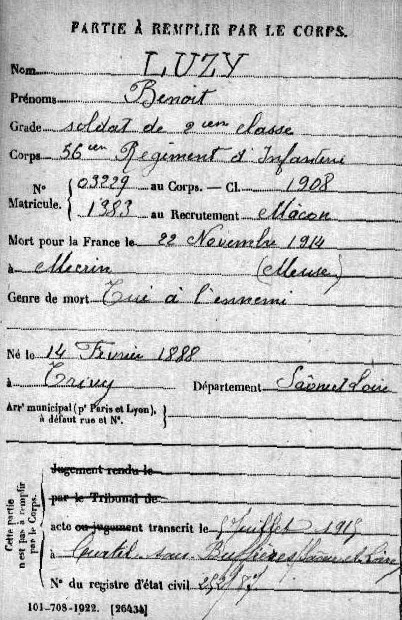 PARTIE À REMPLIR PAR LE CORPS.
Nom LUZY
Prénoms Benoit
Grade soldat de 2ème classe
Corps 56ème Régiment d'Infanterie
N° Matricule. { 03229 au Corps. — Cl. 1908
1383 au Recrutement Mâcon
Mort pour la France le 22 Novembre 1914
à Mecrin (Meuse)
Genre de mort Tué à l'ennemi
Né le 14 Février 1888
à Trivy Département Saône et Loire
Arrt municipal (pr Paris et Lyon), à défaut rue et N°.
Cette partie n'est pas à remplir par le Corps.
Jugement rendu le
par le Tribunal de
acte ou jugement transcrit le 5 Juillet 1915
à Curtil sous Buffières Saône et Loire
N° du registre d'état civil
101-708-1922. [26434]